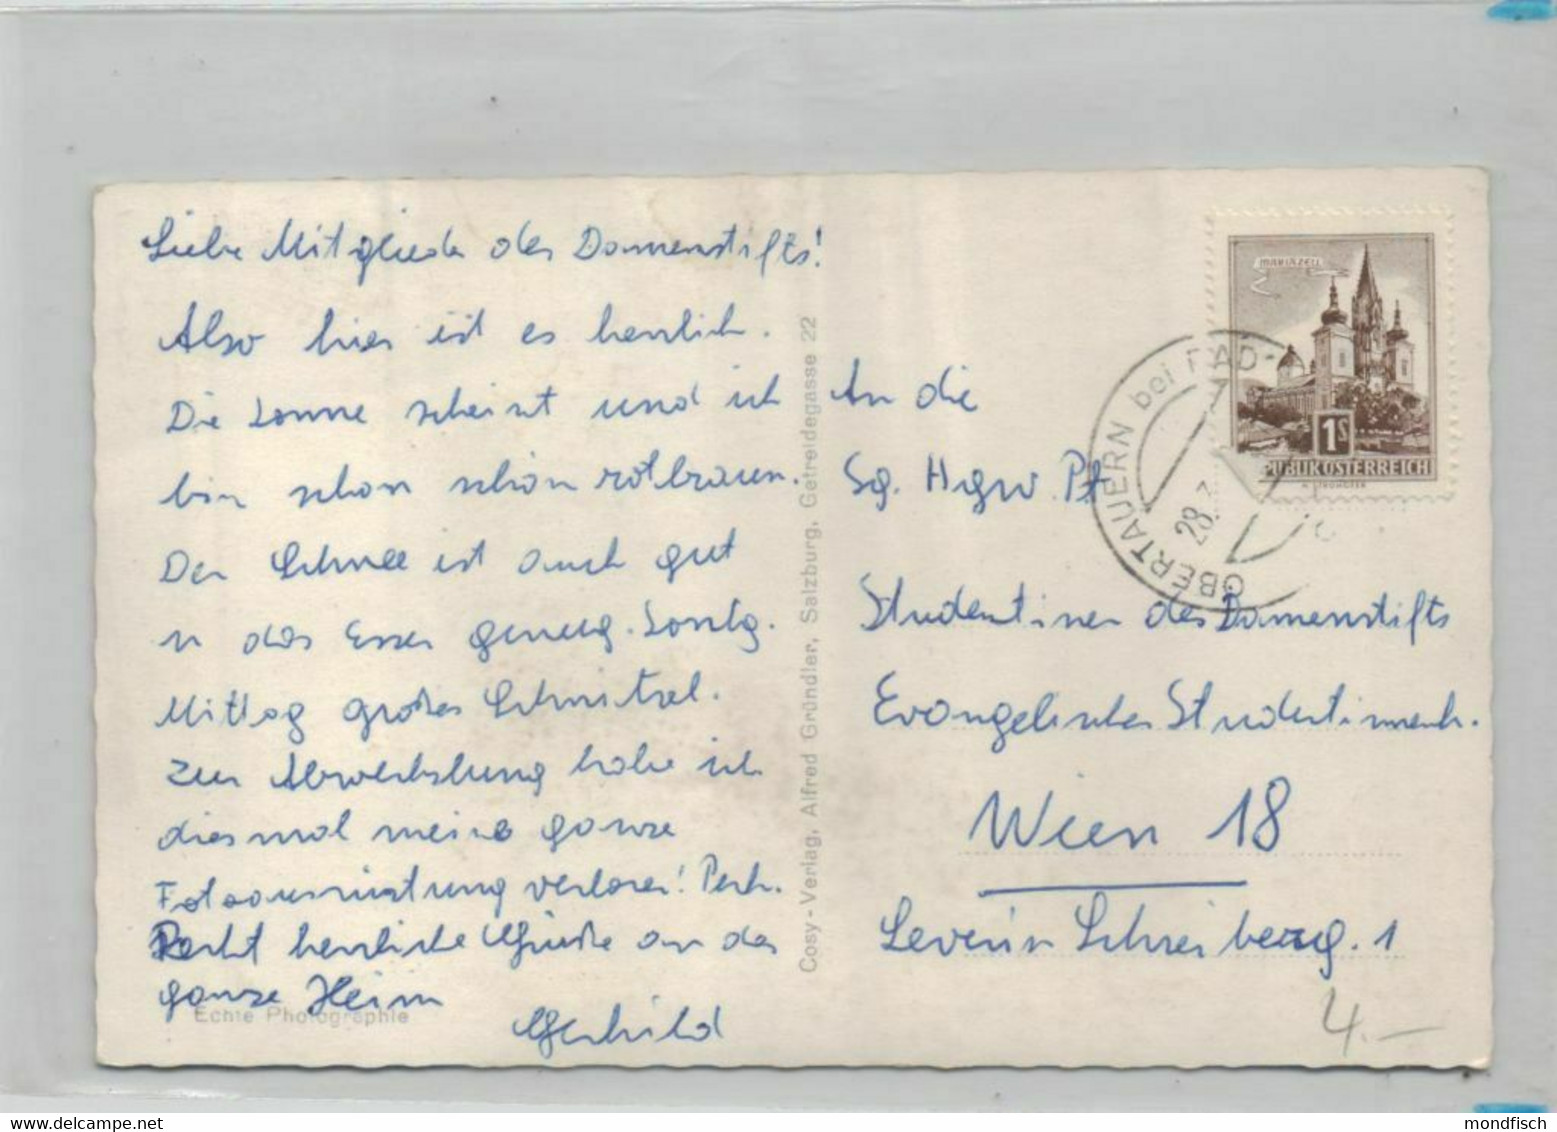 Liebe Mitglieder des Damenstifts!
Also hier ist es herrlich.
Die Sonne scheint und ich
bin schon schön rotbraun.
Der Schnee ist auch gut
u das Essen genug. Sontg.
Mittag großes Schnitzel.
Zur Abwechslung habe ich
diesmal meine ganze
Fotoausrüstung verloren! Pech.
Recht herzliche Grüße an das
ganze Heim
Gerhild
Echte Photographie
Cosy-Verlag, Alfred Gründler, Salzburg, Getreidegasse 22
MARIAZELL
1S
PUBLIK ÖSTERREICH
OBERTAUERN bei RAD
28.
An die
Sg. Hgw. Pf
Studentinen des Damenstifts
Evangelisches Studentinnenh.
Wien 18
Severin Schreiberg. 1
4.-
mondfisch